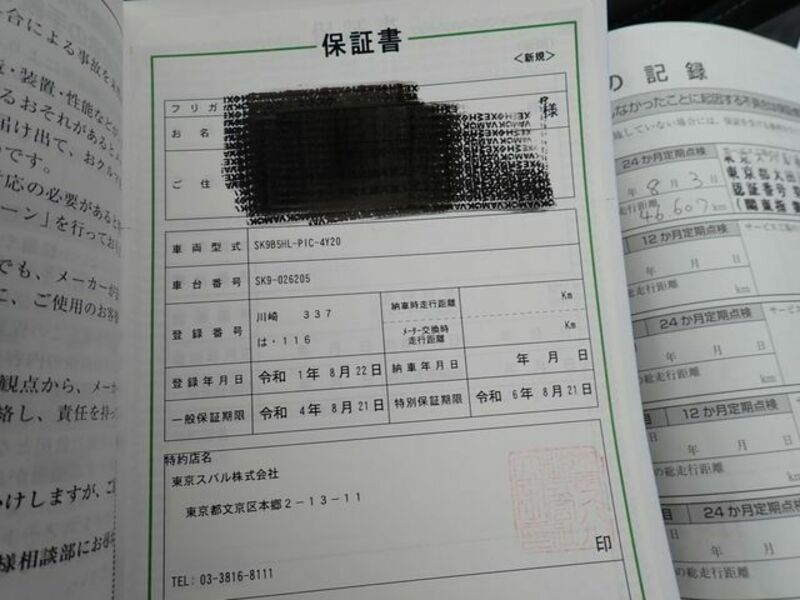 保証書
<新規>
フリガ
お名
様
ご住
車両型式 SK9B5HL-PIC-4Y20
車台番号 SK9-026205
登録番号 川崎 337
は・116
納車時走行距離 Km
メーター交換時
走行距離 Km
登録年月日 令和 1年 8月22日 納車年月日 年 月 日
一般保証期限 令和 4年 8月21日 特別保証期限 令和 6年 8月21日
特約店名
東京スバル株式会社
東京都文京区本郷2-13-11
印
TEL: 03-3816-8111
合による事故を未
置・装置・性能など
るおそれがあると
届け出て、おクルマ
のです。
対応の必要があると
ーン」を行ってお
でも、メーカーが
に、ご使用のお客
観点から、メーカ
絡し、責任を持っ
いけしますが、ご
様相談部にお
の記録
24か月定期点検
年 8月 3日
走行距離 46607km
東京都大田
認証番号
(関東指
12か月定期点検
年 月 日
走行距離
km
24か月定期点検
年 月 日
の総走行距離
km
12か月定期点検
年 月 日
の総走行距離
km
24か月定期点検
年 月 日
の総走行距離
km